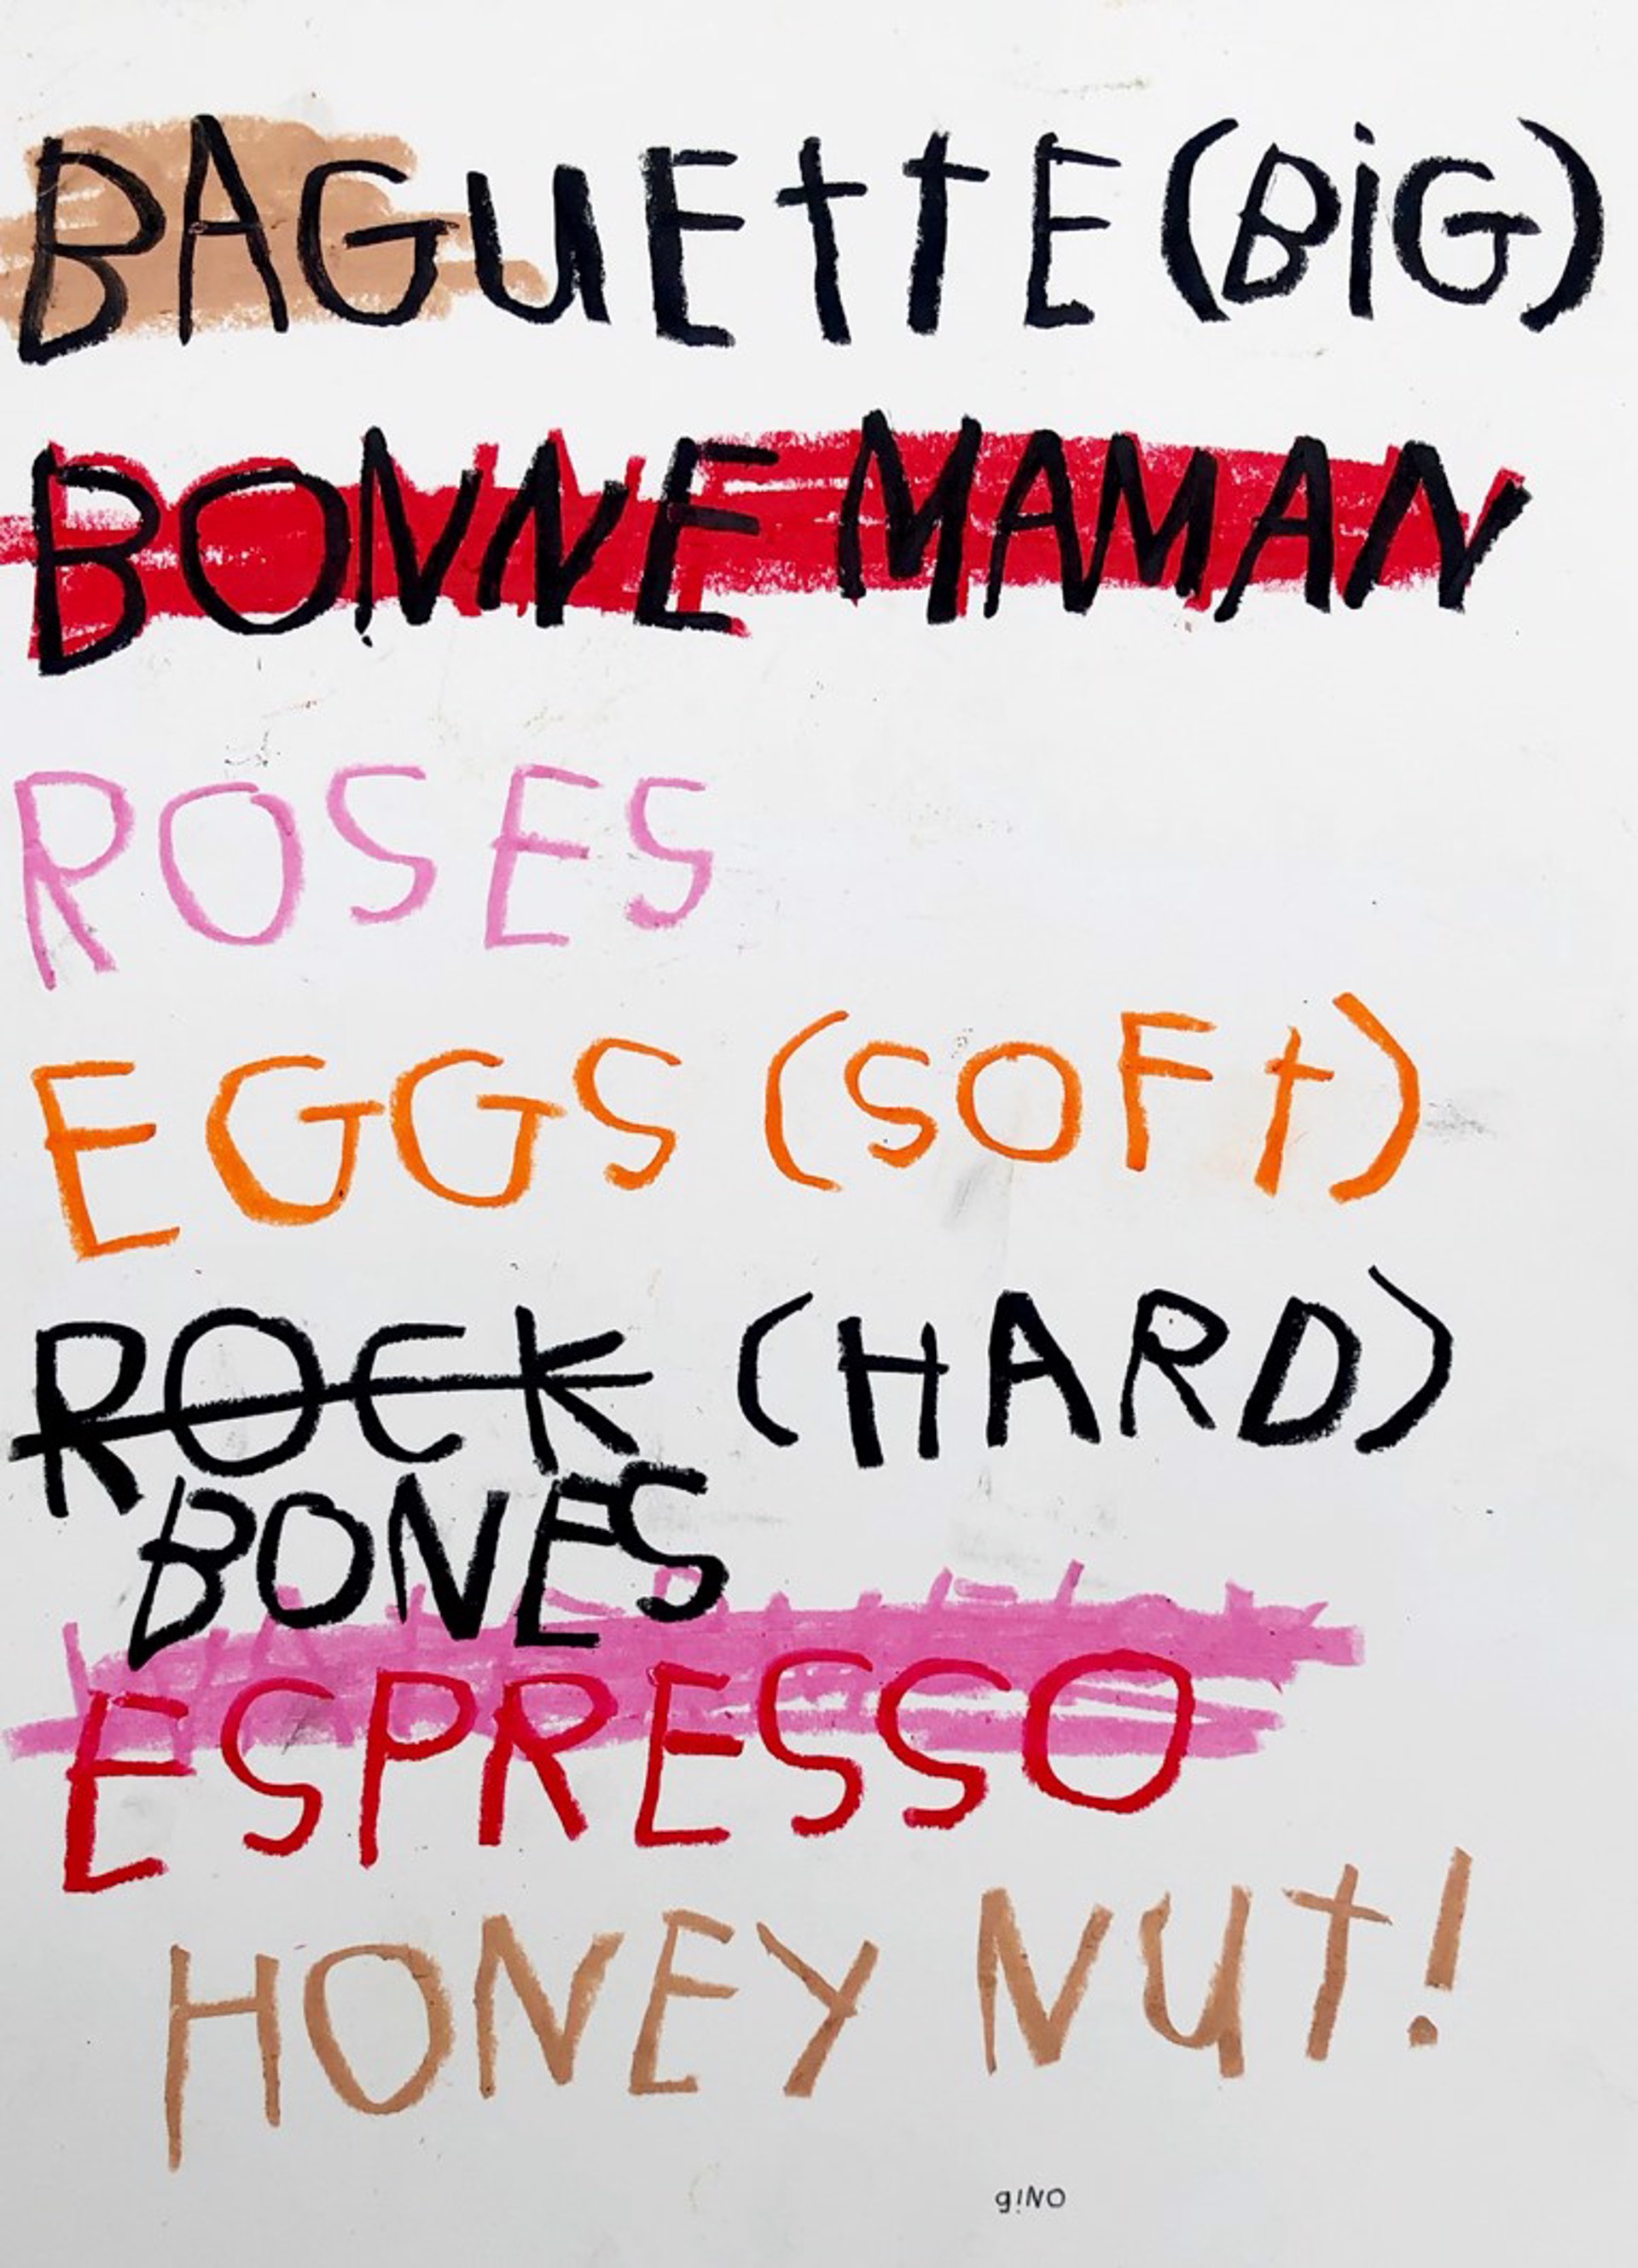 BAGUEttE (BiG)
BONNE MAMAN
ROSES
EGGS (SOFt)
ROCK (HARD)
BONES
ESPRESSO
HONEY NUt!
g!NO